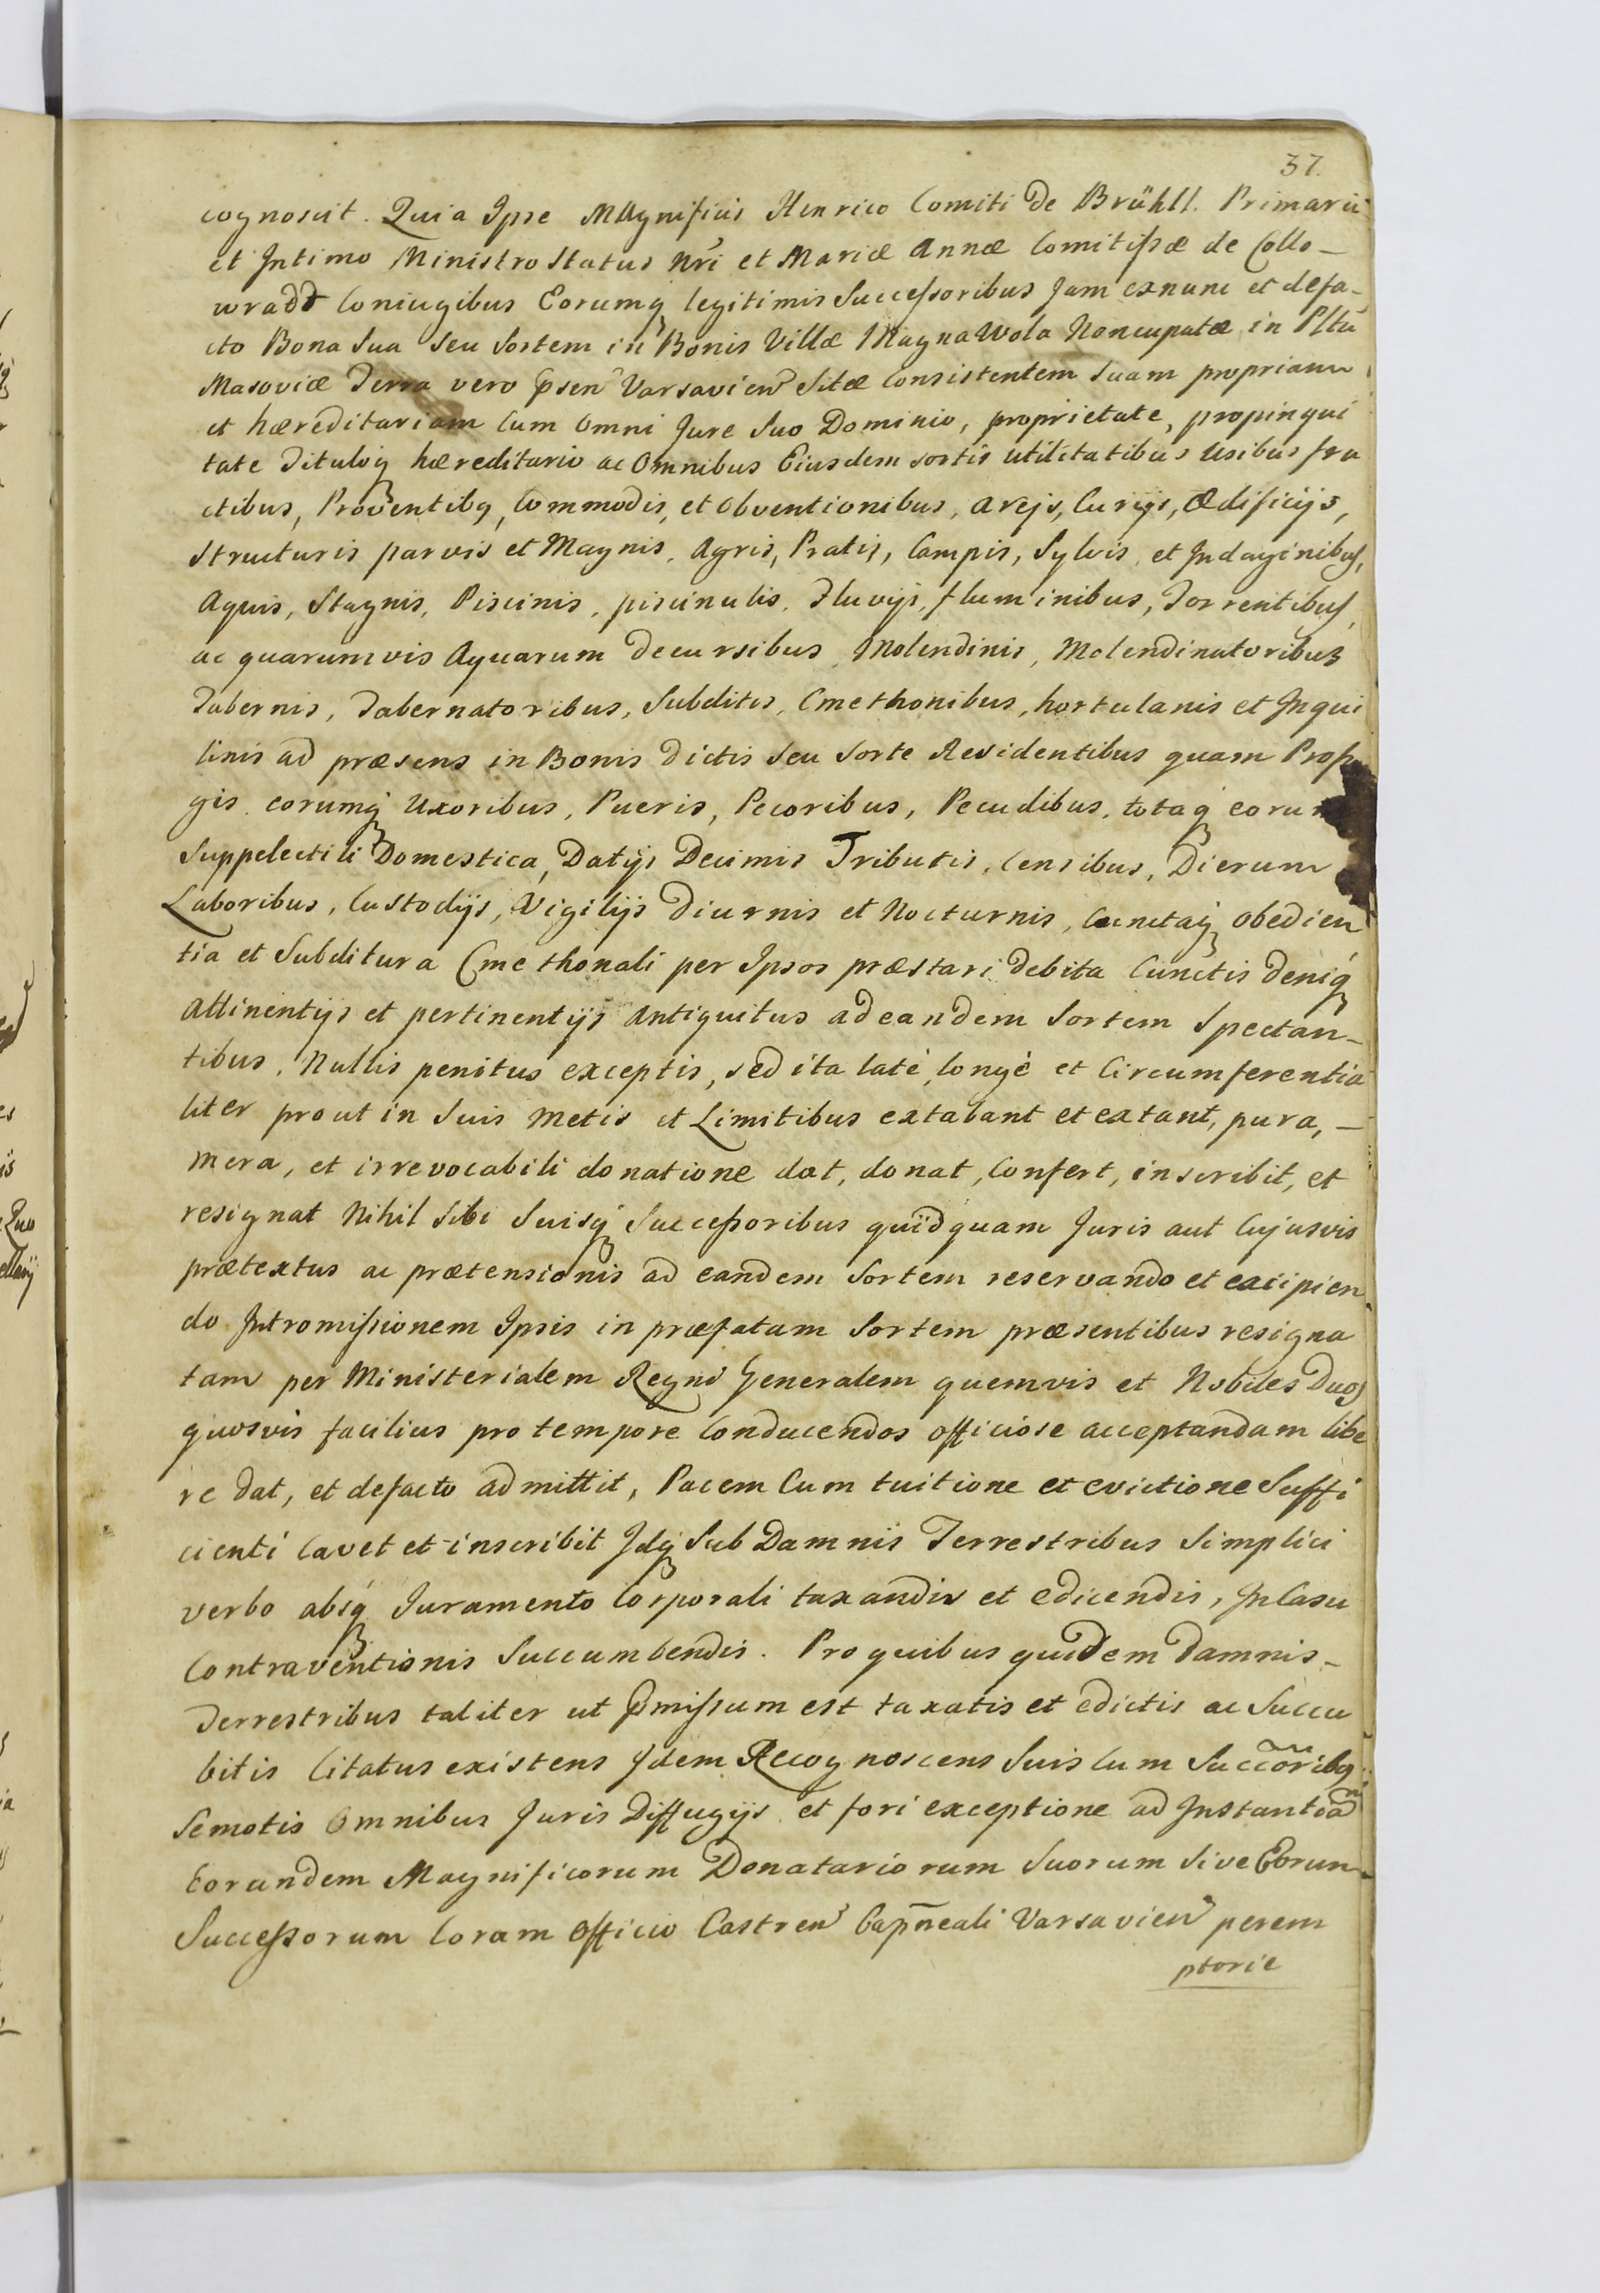 37.
cognoscit. Quia Ipse Magnificis Henrico Comiti de Brühll. Primario
et Intimo Ministro Status Nri et Mariæ Annæ Comitissæ de Collo-
wradt Coniugibus Eorumq legitimis Successoribus Jam exnunc et defa-
cto Bona Sua Seu Sortem in Bonis Villæ Magna Wola Noncupatæ in Pltu
Masoviæ Terra vero Psen Varsavien Sitæ Consistentem Suam propriam
et hæreditariam Cum Omni Jure Suo Dominio, proprietate, propinqui
tate Tituloq hæreditario ac Omnibus Eiusdem sortis utilitatibus Usibus fru
ctibus, Proventibq, Commodis, et Obventionibus, Areis, Curijs, Ædificijs,
Structuris parvis et Magnis, Agris, Pratis, Campis, Sylvis, et Indaginibus,
Aquis, Stagnis, Piscinis, piscinulis, Fluvijs, fluminibus, Torrentibus,
ac quarumvis Aquarum decursibus, Molendinis, Molendinatoribus
Tabernis, Tabernatoribus, Subditis, Cmethonibus, hortulanis et Inqui
linis ad præsens in Bonis dictis Seu Sorte Residentibus quam
gis eorumq Uxoribus, Pueris, Pecoribus, Pecudibus, totaq
Suppelectili Domestica, Datijs Decimis Tributis, Censibus, Dierum
Laboribus, Custodijs, Vigilijs Diurnis et Nocturnis, Cunctaq obedien
tia et Subditura Cmethonali per Ipsos præstari debita Cunctis deniq
Attinentijs et pertinentijs Antiquitus ad eandem Sortem Spectan-
tibus, Nullis penitus exceptis, sed ita latè, longè et Circumferentia
liter prout in Suis Metis et Limitibus extabant et extant, pura, —
mera, et irrevocabili donatione dat, donat, Confert, inscribit, et
resignat Nihil Sibi Suisq Successoribus quidquam Juris aut Cujusvis
prætextus ac prætensionis ad eandem Sortem reservando et excipien-
do Intromissionem Ipsis in præfatam Sortem præsentibus resigna
tam per Ministerialem Regni Generalem quemvis et Nobiles Duos
quosvis facilius pro tempore Conducendos officiose acceptandam libe
re dat, et defacto admittit, Pacem Cum tuitione et evictione Suffi
cienti Cavet et inscribit Idq Sub Damnis Terrestribus Simplici
verbo absq Juramento Corporali taxandis et edicendis, In Casu
Contraventionis Succumbendis. Pro quibus quidem Damnis-
Terrestribus taliter ut Pmissum est taxatis et edictis ac Succu
bitis Citatus existens Idem Recognoscens Suis Cum Succoribq
Semotis Omnibus Juris Diffugijs et fori exceptione ad Instantiam
Eorundem Magnificorum Donatariorum Suorum Sive Eorun-
Successorum Coram Officio Castren Capneali Varsavien perem
ptorie